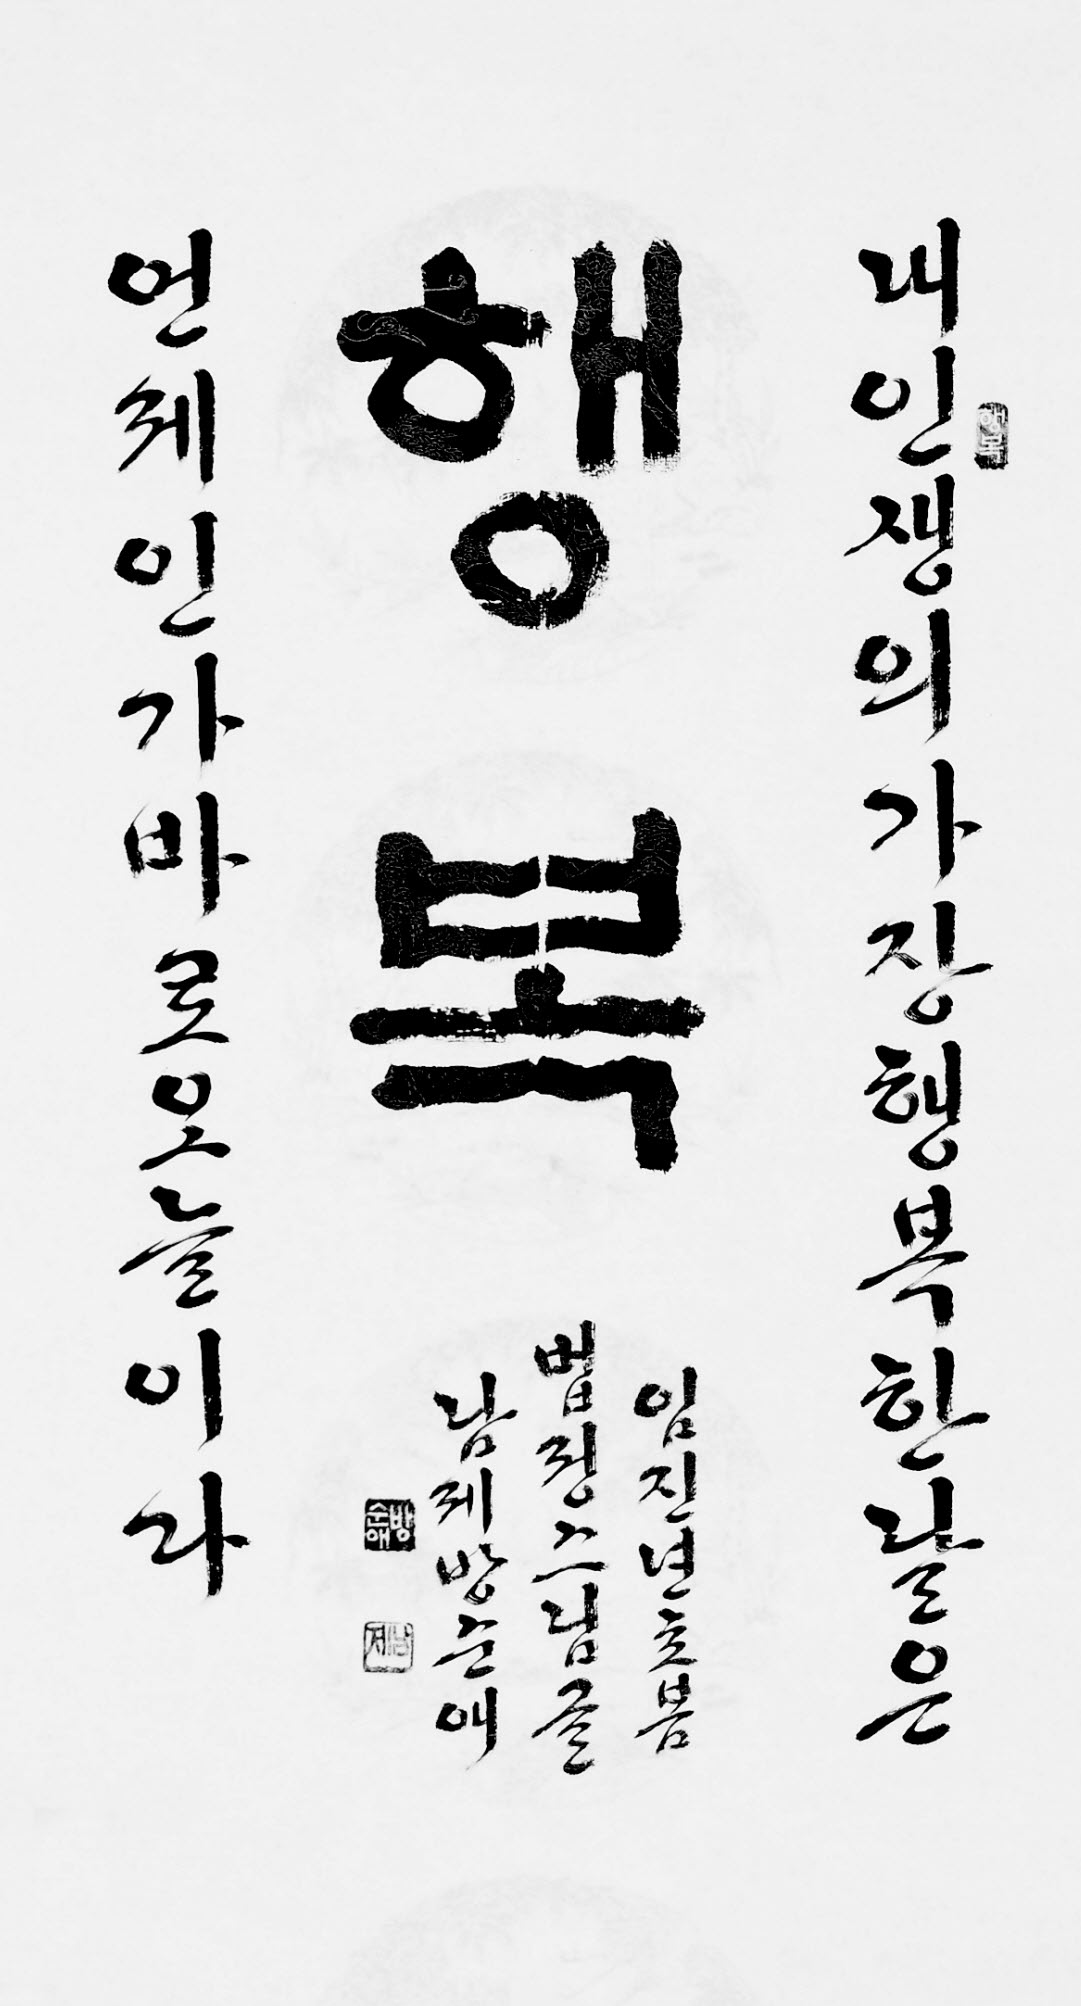 내인생의가장행복한날은
행복
행복
언제인가바로오늘이라
임진년초봄
법정스님글
남제방순애
방순애